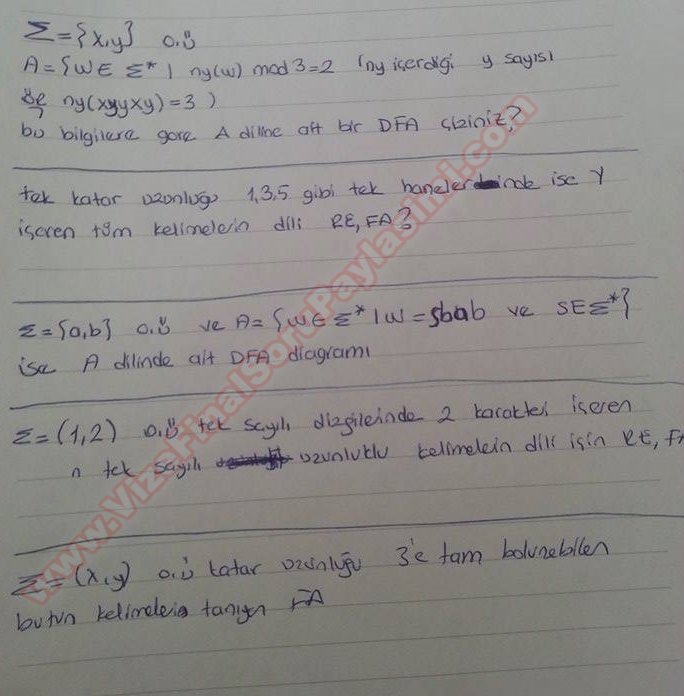 Σ={x,y} o.ü
A={W∈ Σ* | ny(w) mod 3=2 (ny içerdiği y sayısı
ör ny(xyyxy)=3 )
bu bilgilere göre A diline ait bir DFA çiziniz?
tek katar uzunluğu 1,3,5 gibi tek hanelerinde ise Y
içeren tüm kelimelerin dili RE, FA?
Σ={a,b} o.ü ve A={W∈ Σ* | W=sbab ve S∈Σ*}
ise A dilinde ait DFA diagramı
Σ=(1,2) o.ü tek sayılı dizgileinde 2 karakteri içeren
n tek sayılı uzunluklu kelimelein dili için RE, FA
Σ=(x,y) o.ü katar uzunluğu 3'e tam bölünebilen
bütün kelimeleri tanıyan FA
www.VizeFinalSoruPaylasimi.com